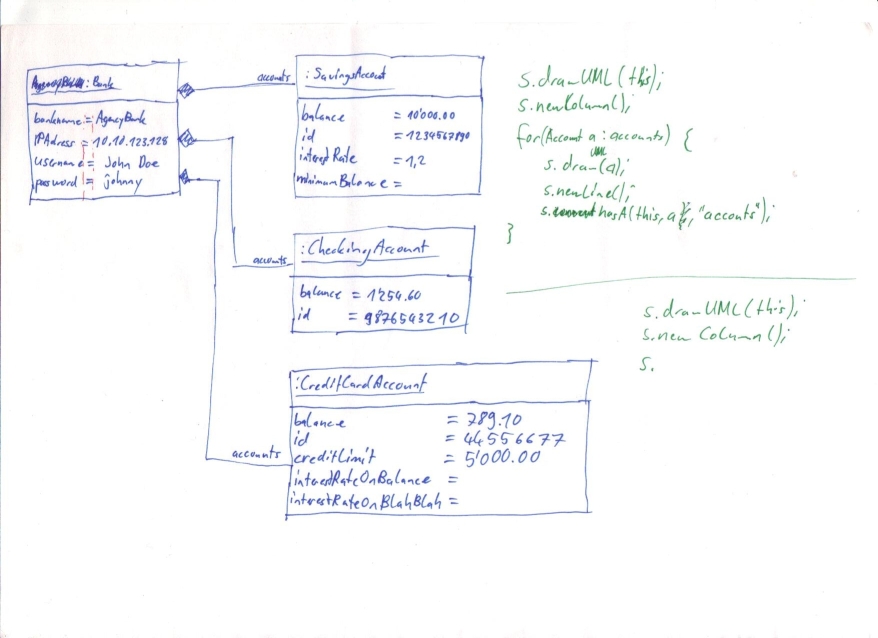 : Bank
bankname = AgencyBank
IPAdress = 10.10.123.128
username = John Doe
password = johnny
accounts
: SavingsAccount
balance = 10'000.00
id = 1234567890
interest Rate = 1,2
minimumBalance =
accounts
:CheckingAccount
balance = 1'254.60
id = 9876543210
accounts
:CreditCardAccount
balance = 789.10
id = 44556677
creditLimit = 5'000.00
interestRateOnBalance =
interestRateOnBlahBlah =
s.drawUML(this);
s.newColumn();
for(Account a : accounts) {
s.drawUML(a);
s.newLine();
s.hasA(this, a, "accounts");
}
s.drawUML(this);
s.new Column();
s.